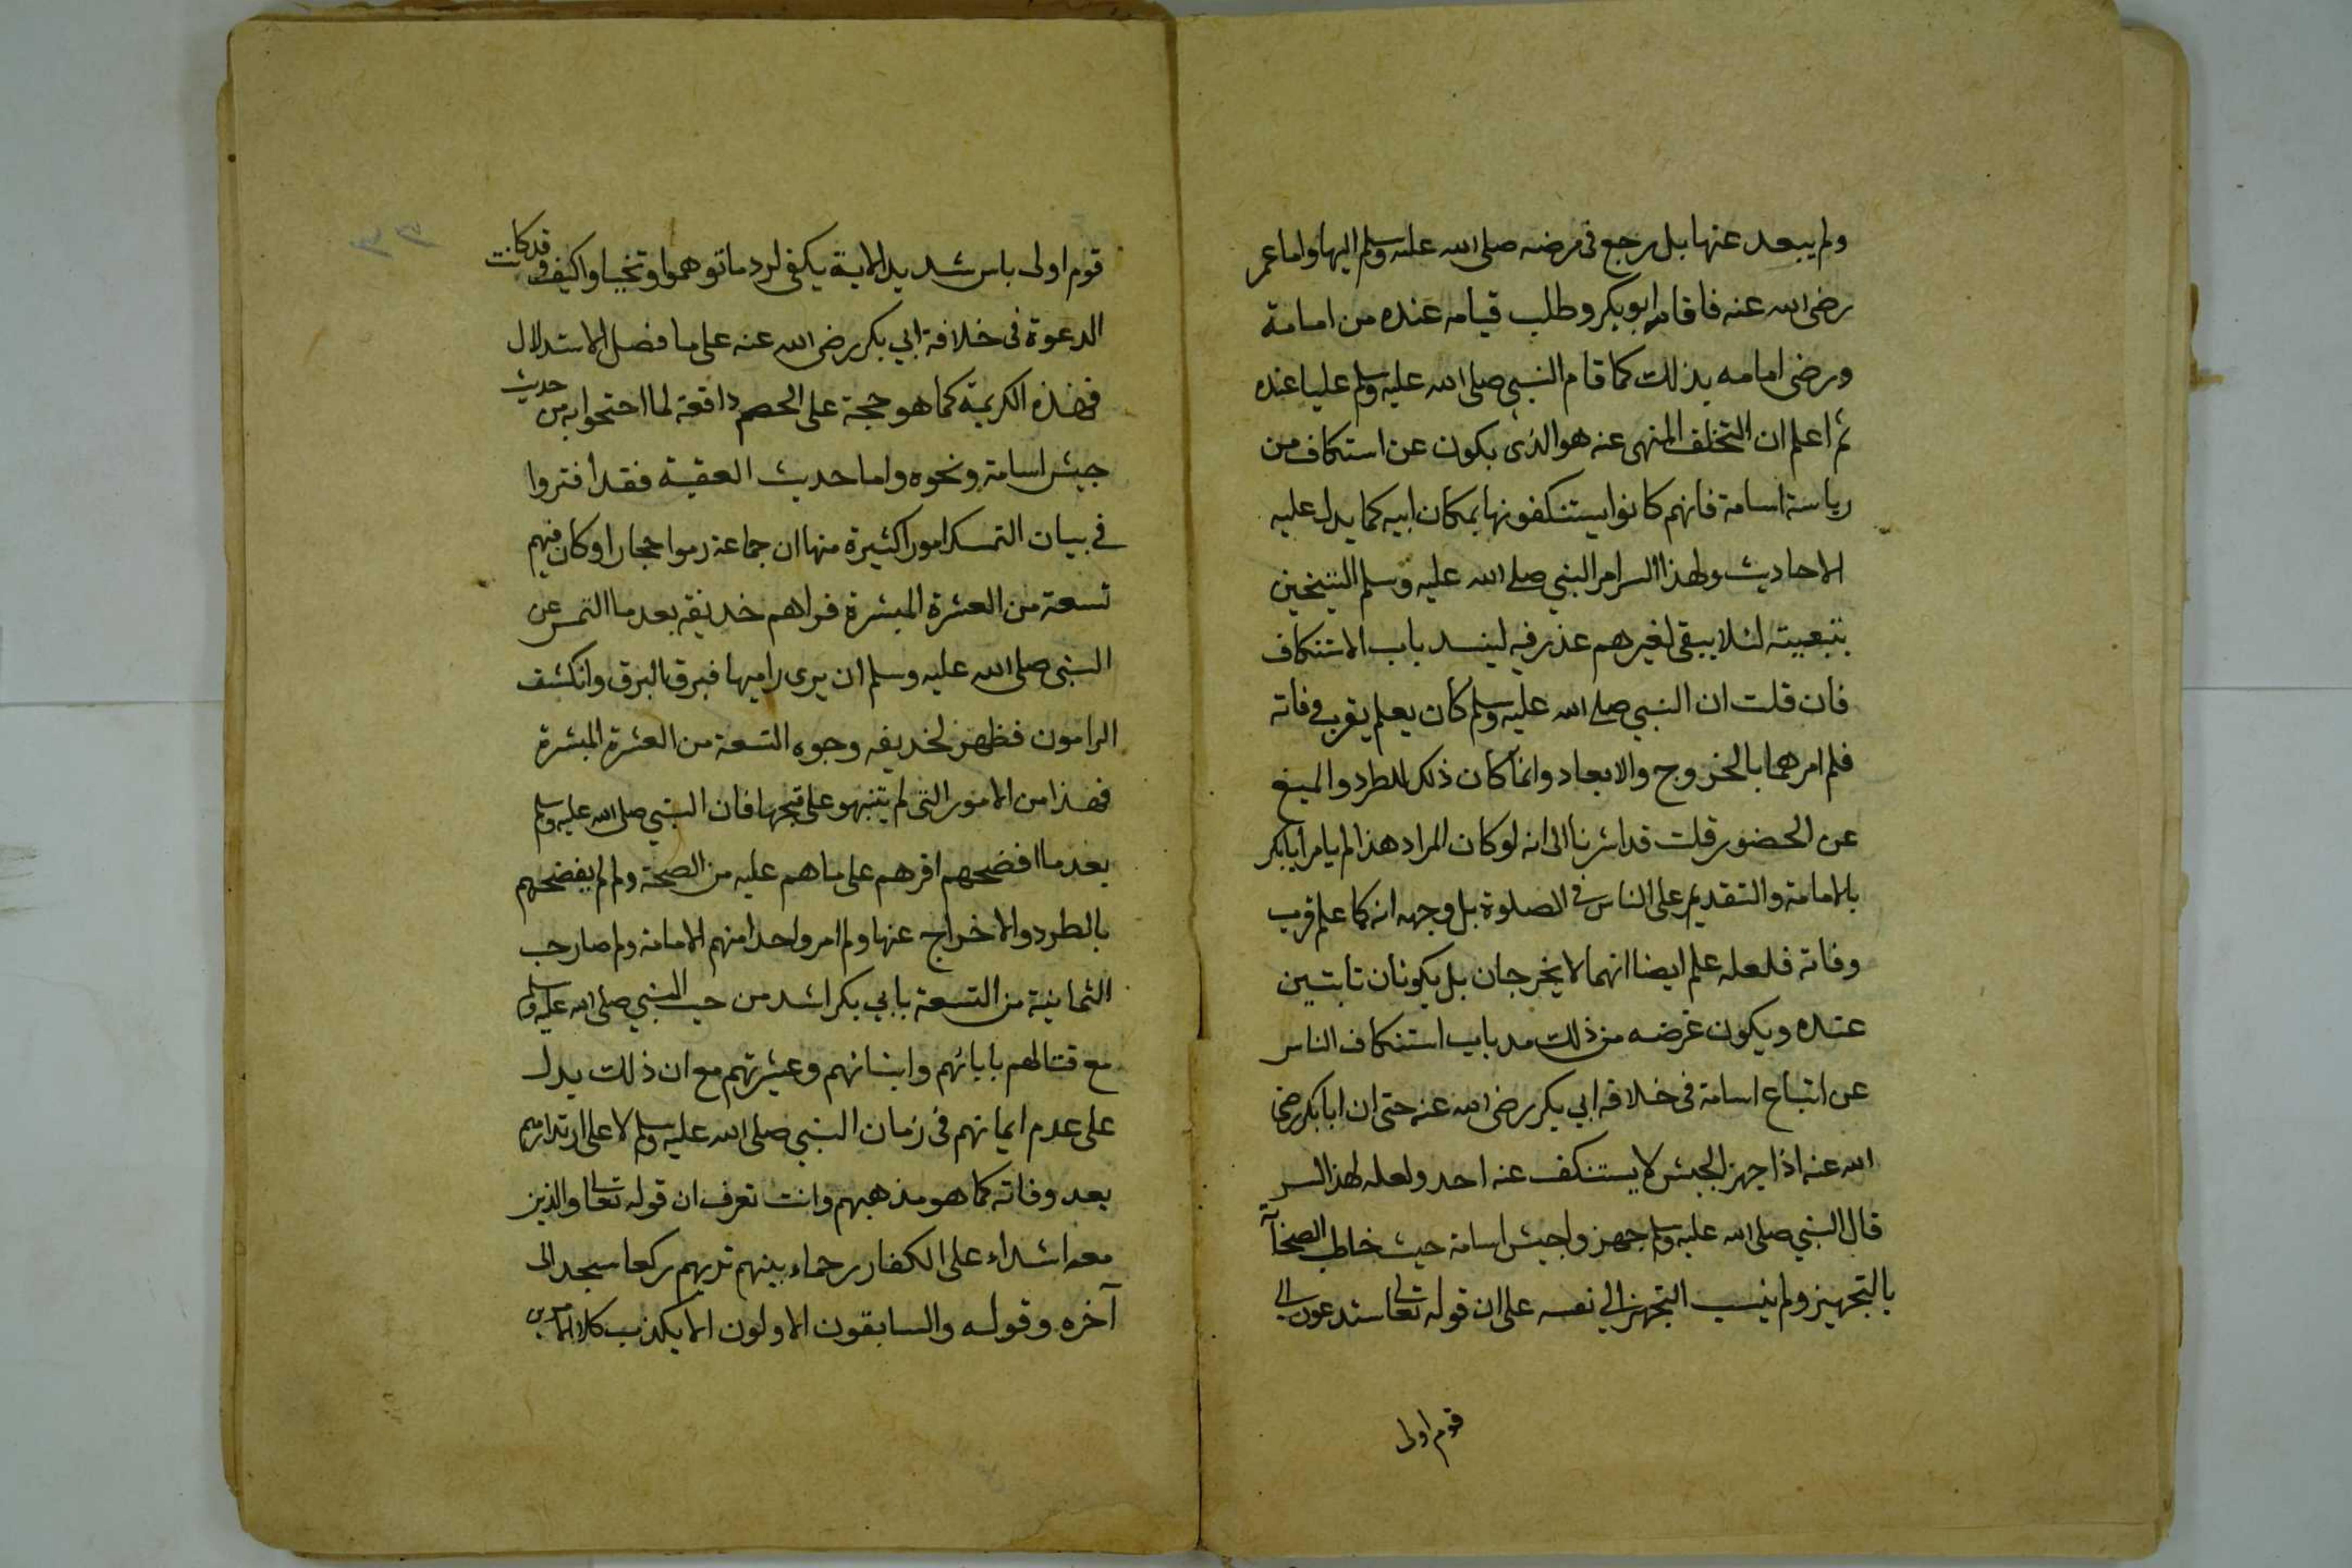 ولم يبعد عنها بل رجع فى مرضه صلى الله عليه وسلم اليها واما عمر
رضى الله عنه فاقامه ابو بكر وطلب قيامه عنده من اسامة
ورضى اسامه بذلك كما قام النبي صلى الله عليه وسلم عليا عنده
ثم اعلم ان التخلف المنهى عنه هو الذى يكون عن استنكاف من
رياسة اسامة فانهم كانوا يستنكفونها بمكان ابيه كما يدل عليه
الاحاديث ولهذا السر امر النبي صلى الله عليه وسلم الشيخين
بتبعيته لئلا يبقى لغيرهم عذر فيه لينسد باب الاستنكاف
فان قلت ان النبي صلى الله عليه وسلم كان يعلم بقرب وفاته
فلم امرهما بالخروج والابعاد وانما كان ذلك للطرد والمنع
عن الحضور قلت قد اشرنا الى انه لو كان المراد هذا لم يامر ابا بكر
بالامامة والتقديم على الناس فى الصلوة بل وجهه انه كما علم قرب
وفاته فلعله علم ايضا انهما لا يخرجان بل يكونان ثابتين
عنده ويكون غرضه من ذلك سد باب استنكاف الناس
عن اتباع اسامة فى خلافة ابي بكر رضى الله عنه حتى ان ابا بكر رضى
الله عنه اذا جهز الجيش لا يستنكف عنه احد ولعله لهذا السر
قال النبي صلى الله عليه وسلم جهزوا جيش اسامة حيث خاطب الصحابة
بالتجهيز ولم ينسب التجهيز الى نفسه على ان قوله تعالى ستدعون الى
قوم اولى
قوم اولى باس شديد الاية يكفى لرد ما توهموا وتخيلوا كيف وقد كانت
الدعوة فى خلافة ابي بكر رضى الله عنه على ما فصل الاستدلال
فهذه الكريمة كما هو حجة على الخصم دافعة لما احتجوا به من حديث
جيش اسامة ونحوه واما حديث العقبة فقد افتروا
فى بيان التمسك امورا كثيرة منها ان جماعة رموا حجارا وكان فيهم
تسعة من العشرة المبشرة فراهم حذيفه بعد ما التمس عن
النبي صلى الله عليه وسلم ان يرى راميها فبرق البرق وانكشف
الرامون فظهر لحذيفه وجوه التسعة من العشرة المبشرة
فهذا من الامور التى لم يتنبهو على قبحها فان النبي صلى الله عليه وسلم
بعد ما افضحهم اقرهم على ما هم عليه من الصحة ولم لم يفضحهم
بالطرد والاخراج عنها ولم امر واحدا منهم الامامة ولم صار حب
الثمانية من التسعة بابي بكر اشد من حب النبي صلى الله عليه وسلم
مع قتالهم بابائهم وابنائهم وعشيرتهم مع ان ذلك يدل
على عدم ايمانهم فى زمان النبي صلى الله عليه وسلم لا على ارتدادهم
بعد وفاته كما هو مذهبهم وانت تعرف ان قوله تعالى والذين
معه اشداء على الكفار رحماء بينهم تريهم ركعا سجدا الى
آخره وقوله والسابقون الاولون الا يكذب كلا